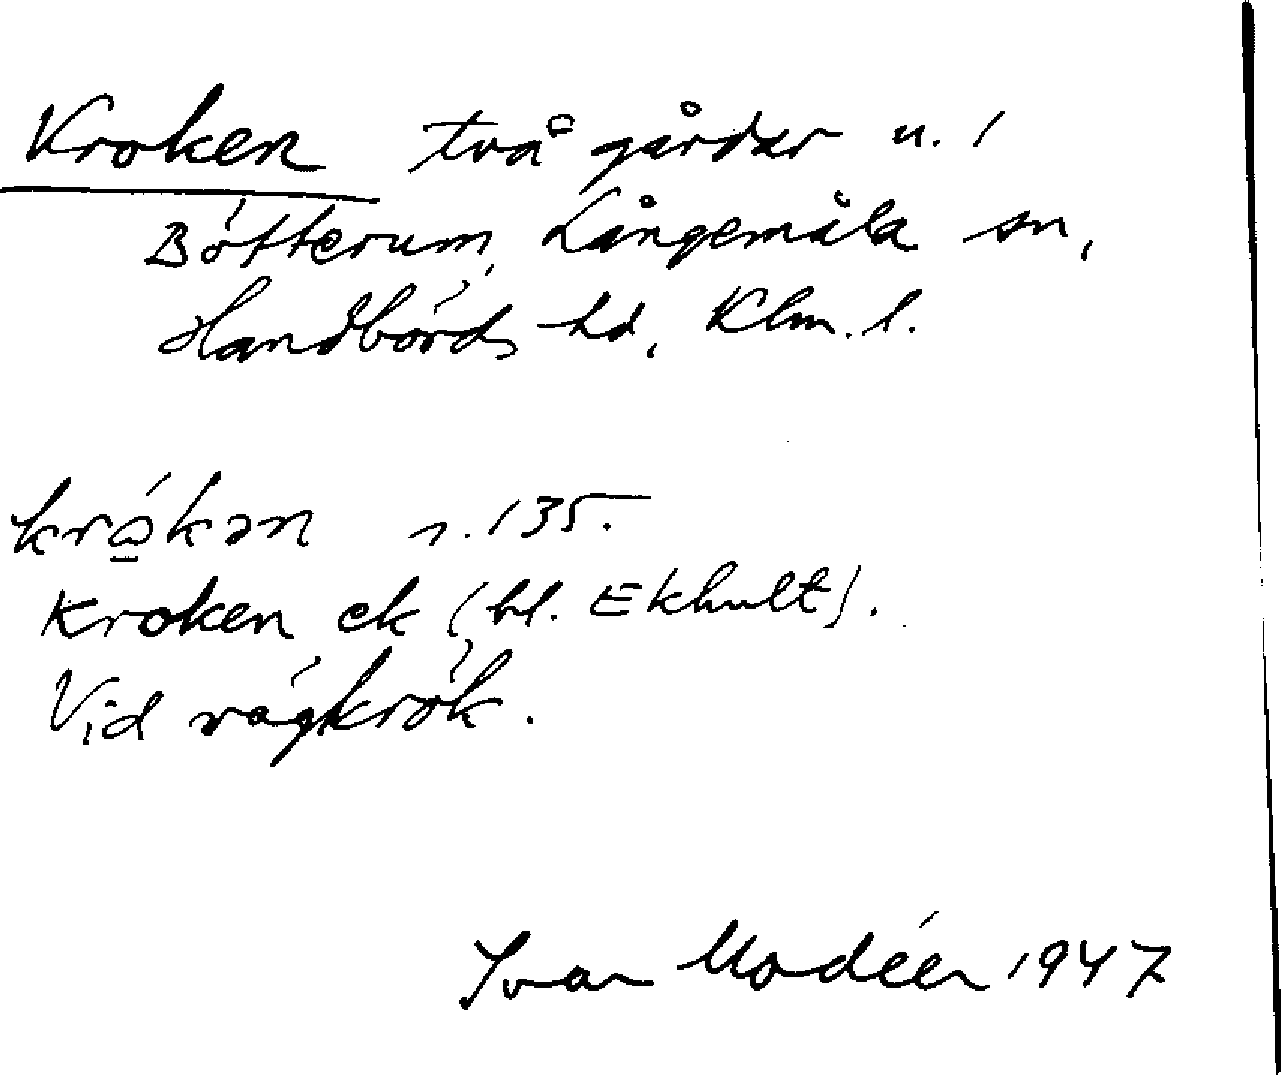 Kroken två gårdar u. /
Bötterum, Långemåla sn,
Handbörds hd, Klm. l.
krókən s. 135.
Kroken ek (bl. Ekhult).
Vid vägkrök.
Ivar Modéer 1947